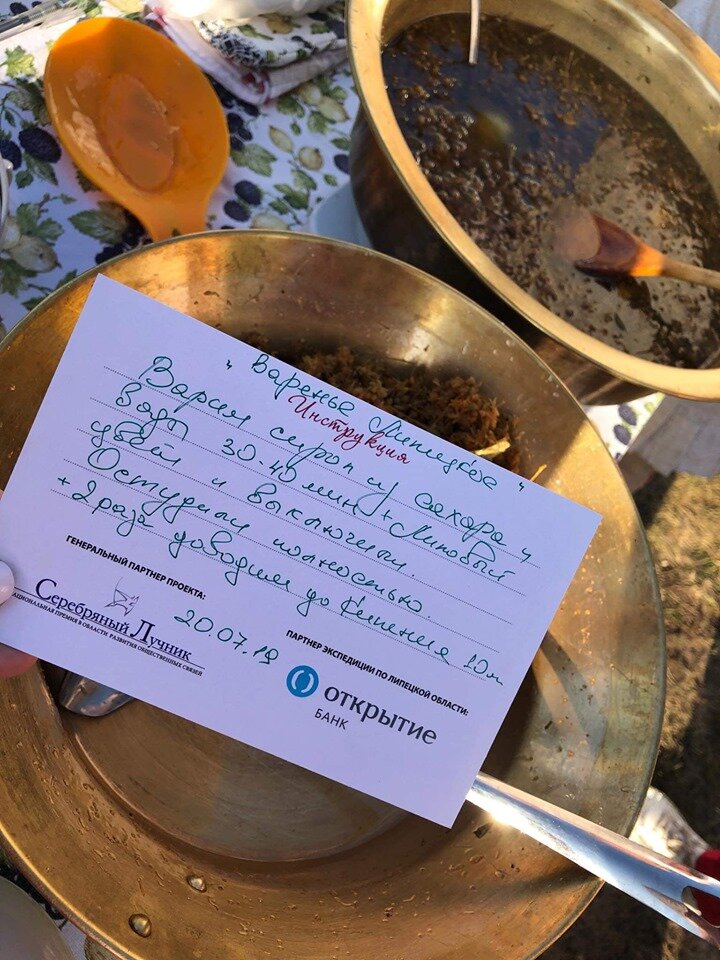 " Варенье Липецкое "
Инструкция
Варим сироп из сахара и
воды 30-40 мин + Липовый
цвет и выключаем.
Остудим полностью.
+ 2 раза доводим до кипения 10м
ГЕНЕРАЛЬНЫЙ ПАРТНЕР ПРОЕКТА:
Серебряный Лучник
НАЦИОНАЛЬНАЯ ПРЕМИЯ В ОБЛАСТИ РАЗВИТИЯ ОБЩЕСТВЕННЫХ СВЯЗЕЙ
20.07.19
ПАРТНЕР ЭКСПЕДИЦИИ ПО ЛИПЕЦКОЙ ОБЛАСТИ:
ОТКРЫТИЕ
БАНК